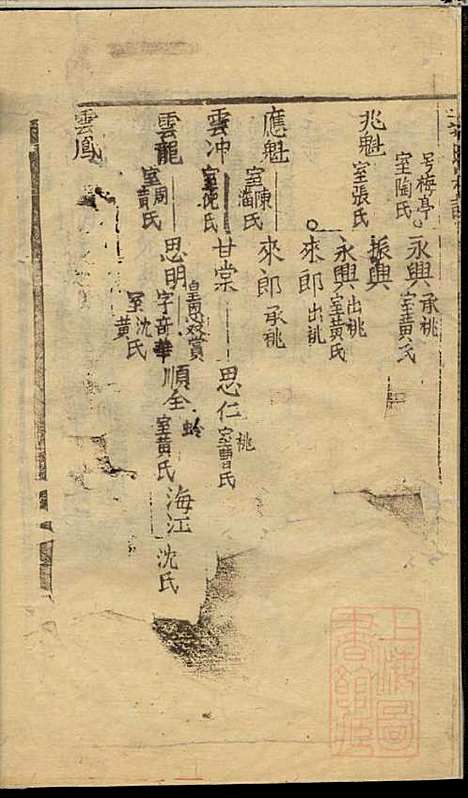 号梅亭
室陶氏
永興
承祧
室黃氏
兆魁
室張氏
振興
永興
出祧
室黃氏
來郎
出祧
應魁
室陳
潘氏
來郎
承祧
雲冲
室沈氏
甘棠
思仁
祧
室曹氏
雲龍
室周
黃氏
思明
皇恩欽賞
字音華
室沈
黃氏
順全
蛉
室黃氏
海江
沈氏
雲鳳
上海圖
書館藏